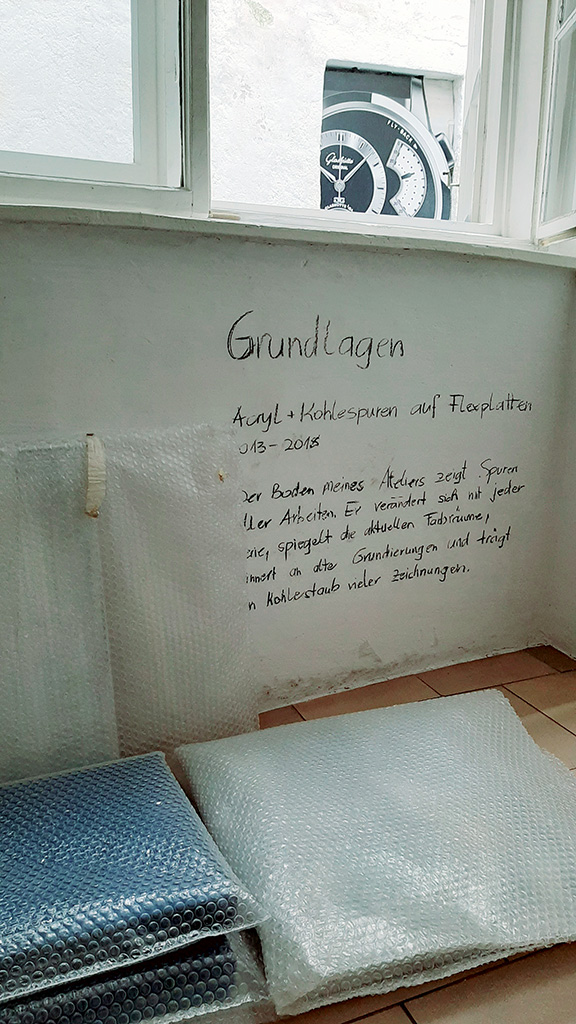 FLY-BACK
Glashütte
ORIGINAL
Grundlagen
Acryl + Kohlespuren auf Flexplatten
013-2018
er Boden meines Ateliers zeigt Spuren
ller Arbeiten. Er verändert sich mit jeder
rie, spiegelt die aktuellen Farbräume,
innert an alte Grundierungen und trägt
n Kohlestaub vieler Zeichnungen.